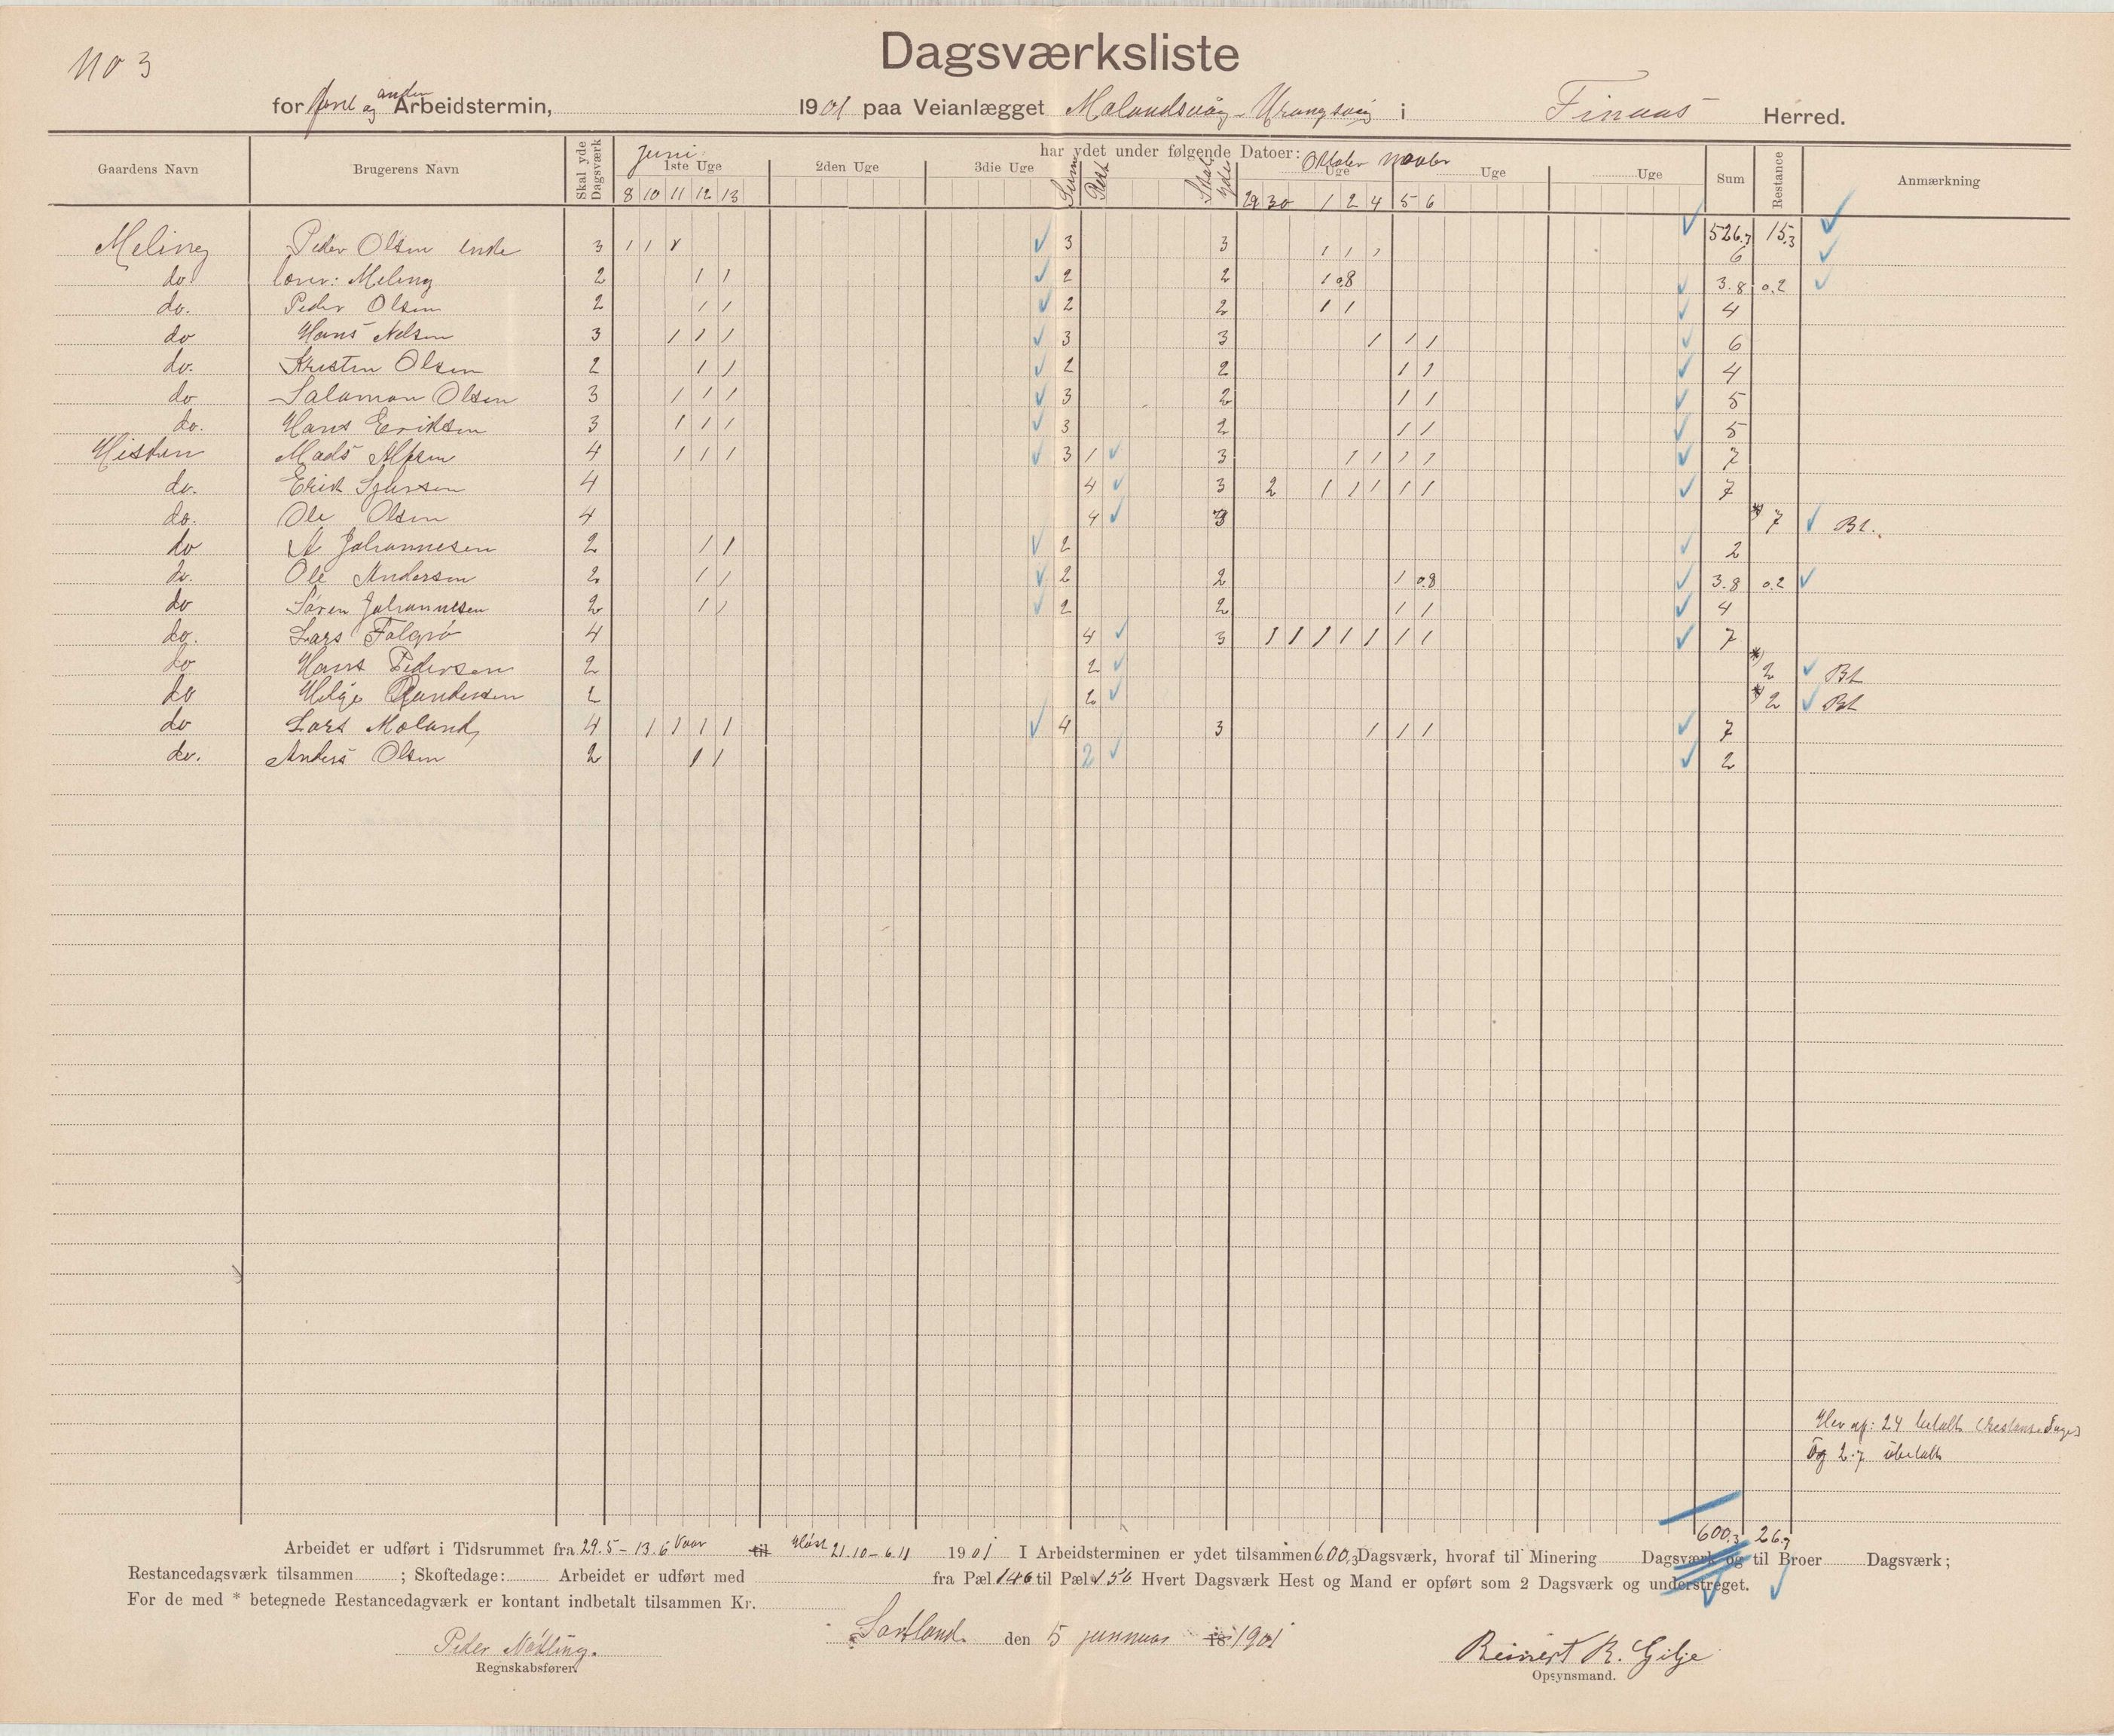 No 3
Dagsværksliste
for først og anden Arbeidstermin, 1901 paa Veianlægget Molandsvåg - Urangsvåg i Finaas Herred.
Gaardens Navn Brugerens Navn Skal yde Dagsværk har ydet under følgende Datoer: Sum Restance Anmærkning
Juni 1ste Uge 2den Uge 3die Uge Sum Rest Skal yde Oktober Uge Novbr Uge Uge
8 10 11 12 13 29 30 1 2 4 5 6
526,7 15,3
Meling Peder Olsen 3 1 1 1 3 3 1 1 1 6
do Meling 2 1 1 2 2 1 0,8 3.8 0.2
do. Peder Olsen 2 1 1 2 2 1 1 4
do Hans Nelsen 3 1 1 1 3 3 1 1 1 6
do. Kristen Olsen 2 1 1 2 2 1 1 4
do Salamon Olsen 3 1 1 1 3 2 1 1 5
do. Hans Eriksen 3 1 1 1 3 2 1 1 5
Hisken Mads Alfsen 4 1 1 1 3 1 3 1 1 1 1 7
do. Erik Sjursen 4 4 3 2 1 1 1 1 1 7
do. Ole Olsen 4 4 3 * 7 Bt.
do A Johannesen 2 1 1 2 2
do. Ole Andersen 2 1 1 2 2 1 0.8 3.8 0.2
do Søren Johannesen 2 1 1 2 2 1 1 4
do. Lars Folgrø 4 4 3 1 1 1 1 1 1 1 7
do Hans Pedersen 2 2 * 2 Bt
do Helge Randersen 2 2 * 2 Bt
do Lars Moland 4 1 1 1 1 4 3 1 1 1 7
do. Anders Olsen 2 1 1 2 2
Herap: 24 betalt (restansedager)
Og 2.7 ubetalt
600,3 26,7
Arbeidet er udført i Tidsrummet fra 29.5 - 13.6 Vaar til Høst 21.10 - 6.11 1901 I Arbeidsterminen er ydet tilsammen 600,3 Dagsværk, hvoraf til Minering Dagsværk og til Broer Dagsværk;
Restancedagsværk tilsammen ; Skoftedage: Arbeidet er udført med fra Pæl 146 til Pæl 156 Hvert Dagsværk Hest og Mand er opført som 2 Dagsværk og understreget.
For de med * betegnede Restancedagværk er kontant indbetalt tilsammen Kr.
Sortland den 5 januar 18 1901
Peder Nøtling. Reinert R. Gilje
Regnskabsfører. Opsynsmand.